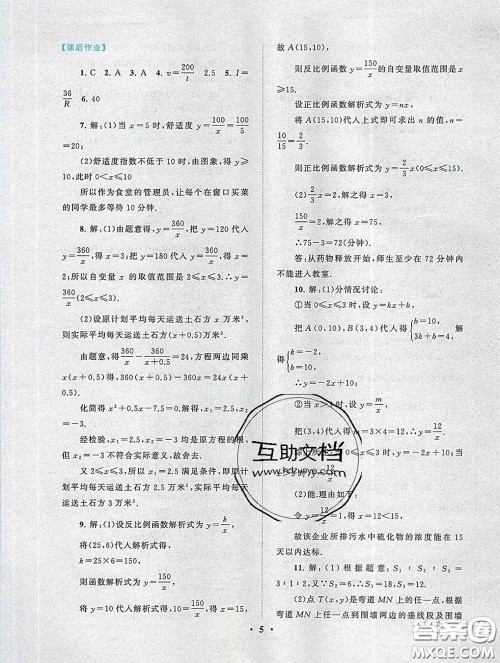 【课后作业】
1. C 2. A 3. A 4. v=200/t 2.5 5. I=
36/R 6. 40
7. 解:(1)当 x=5 时,舒适度 y=100/x=100/5
=20;
(2)舒适度指数不低于 10 时,由图象,得 y≥
10 时,0<x≤10
所以作为食堂的管理员,让每个在窗口买菜
的同学最多等待 10 分钟.
8. 解:(1)由题意得,y=360/x,把 y=120 代入
y=360/x,得 x=3;把 y=180 代入 y=360/x,得 x=
2,所以自变量 x 的取值范围是 2≤x≤3.∴y=
360/x(2≤x≤3).
(2)设原计划平均每天运送土石方 x 万米³,
则实际平均每天运送土石方(x+0.5)万米³.
由题意,得360/x-360/(x+0.5)=24,方程两边同乘
x(x+0.5),得 360(x+0.5)-360x=24x(x+0.5).
化简得 x²+0.5x-7.5=0.
解得 x₁=2.5,x₂=-3.
经检验,x₁=2.5,x₂=-3 均是原方程的根,
但 x₂=-3 不符合实际意义,故舍去.
又 2≤x≤3,所以 x₁=2.5 满足条件,即原计
划平均每天运送土石方 2.5 万米³,实际平均每天
运送土石方 3 万米³.
9. 解:(1)设反比例函数解析式为 y=k/x,
将(25,6)代入解析式得,
k=25×6=150,
则函数解析式为 y=150/x,
将 y=10 代入解析式得,10=150/x,x=15,
故 A(15,10),
则反比例函数 y=150/x的自变量取值范围是 x
≥15.
设正比例函数解析式为 y=nx,
将 A(15,10)代入上式即可求出 n 的值,n=
10/15=2/3.
则正比例函数解析式为 y=2/3x(0≤x≤15).
(2)2/3x=2,解之得 x=3,
150/x=2,解之得 x=75,
∴75-3=72(分钟).
答:从药物释放开始,师生至少在 72 分钟内
不能进入教室.
10. 解:(1)分情况讨论:
①当 0≤x≤3 时,设 y=kx+b,
把 A(0,10),B(3,4)代入得{b=10, 3k+b=4,
解得{k=-2, b=10,
∴y=-2x+10;
②当 x>3 时,设 y=m/x,
把(3,4)代入得 m=3×4=12,
12/x
(2)能.理由如下:
令 12/x=1,得 x=12<15,
故该企业所排污水中硫化物的浓度能在
15 天以内达标.
11. 解:(1)根据题意,得 S₁:S₂:S₃=
3:1:2,又∵S₂=6,∴S₁=18,S₃=12.
(2)点 T(x,y)是弯道 MN 上的任一点,根据
弯道 MN 上任一点到围墙两边的垂线段及围墙
· 5 ·
互助文档
答案圈
MXQE.COM